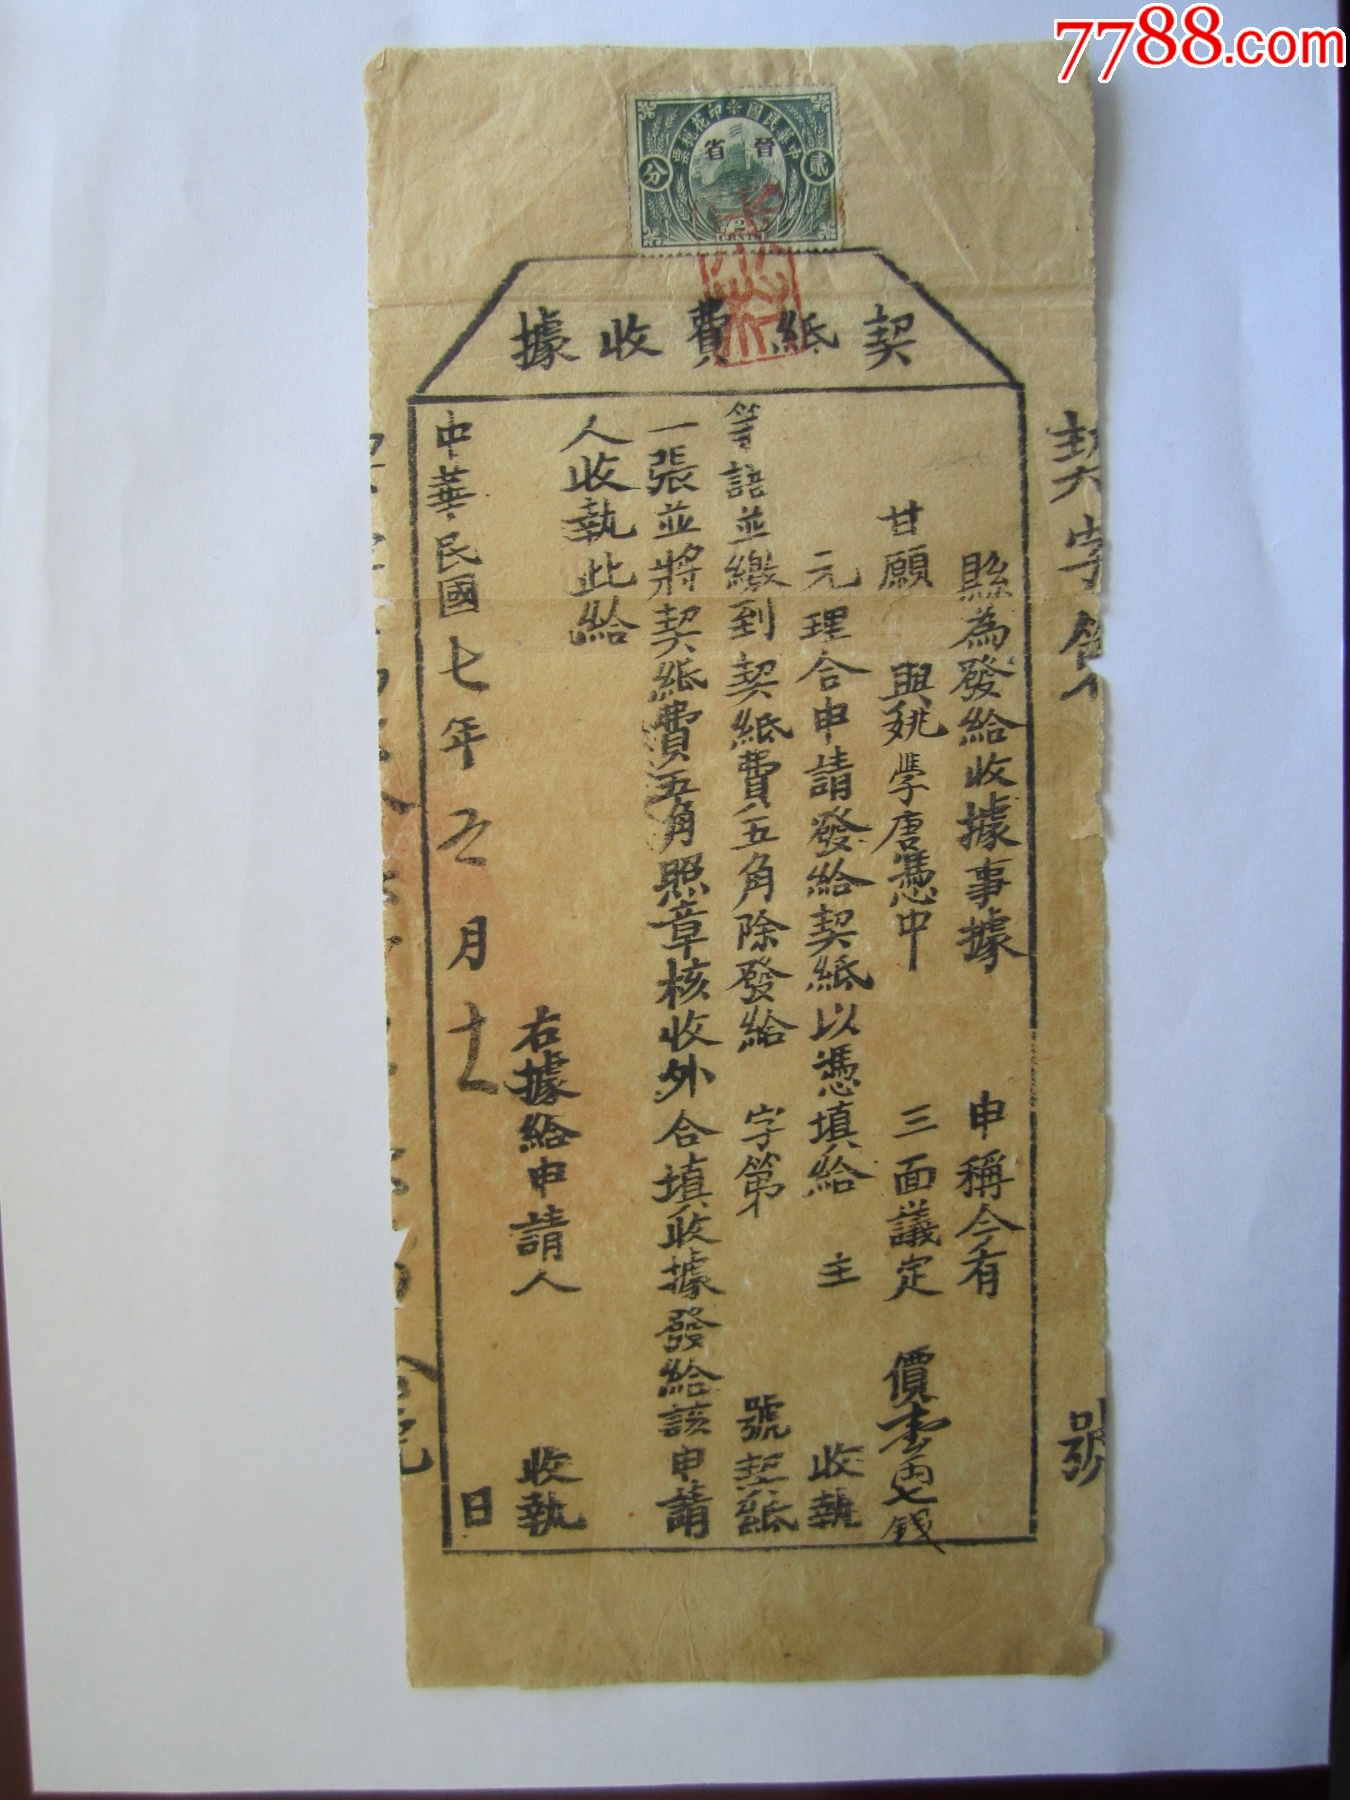 7788.com
中華民國印花稅票
晉省
貳分
2
CENTS
契紙費收據
契字第 號
縣為發給收據事據 申稱今有
甘願 與姚學唐憑中 三面議定 價壹兩七錢
元理合申請發給契紙以憑填給 主 收執
等語並繳到契紙費五角除發給 字第 號契紙
一張並將契紙費五角照章核收外合填收據發給該申請
人收執此給
右據給申請人 收執
中華民國七年五月十 日